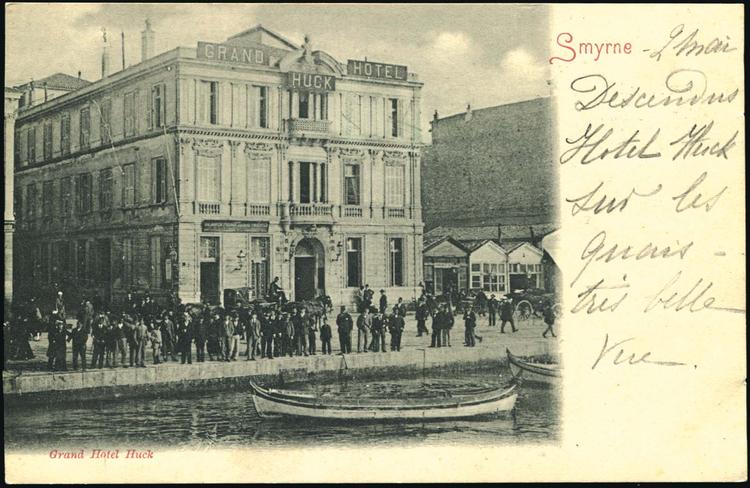 GRAND
HUCK
HOTEL
Smyrne - 2 Mai
Descendus
Hotel Huck
sur les
Quais -
très belle
vue
Grand Hotel Huck